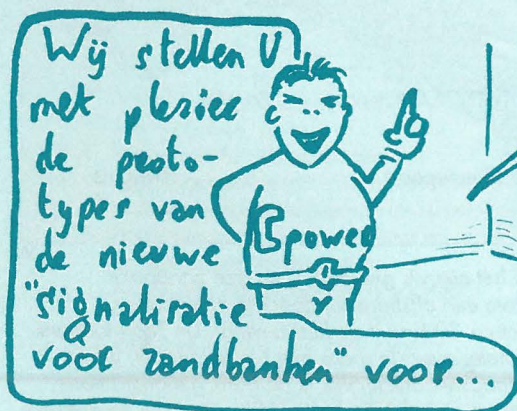 Wij stellen U
met plezier
de proto-
types van
de nieuwe
"signalisatie
voor zandbanken" voor...
Bpower